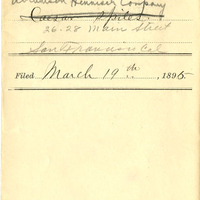 Hennisey Company
Caesar Spiles
26-28 Main Street
San Francisco Cal
Filed March 19th, 1895